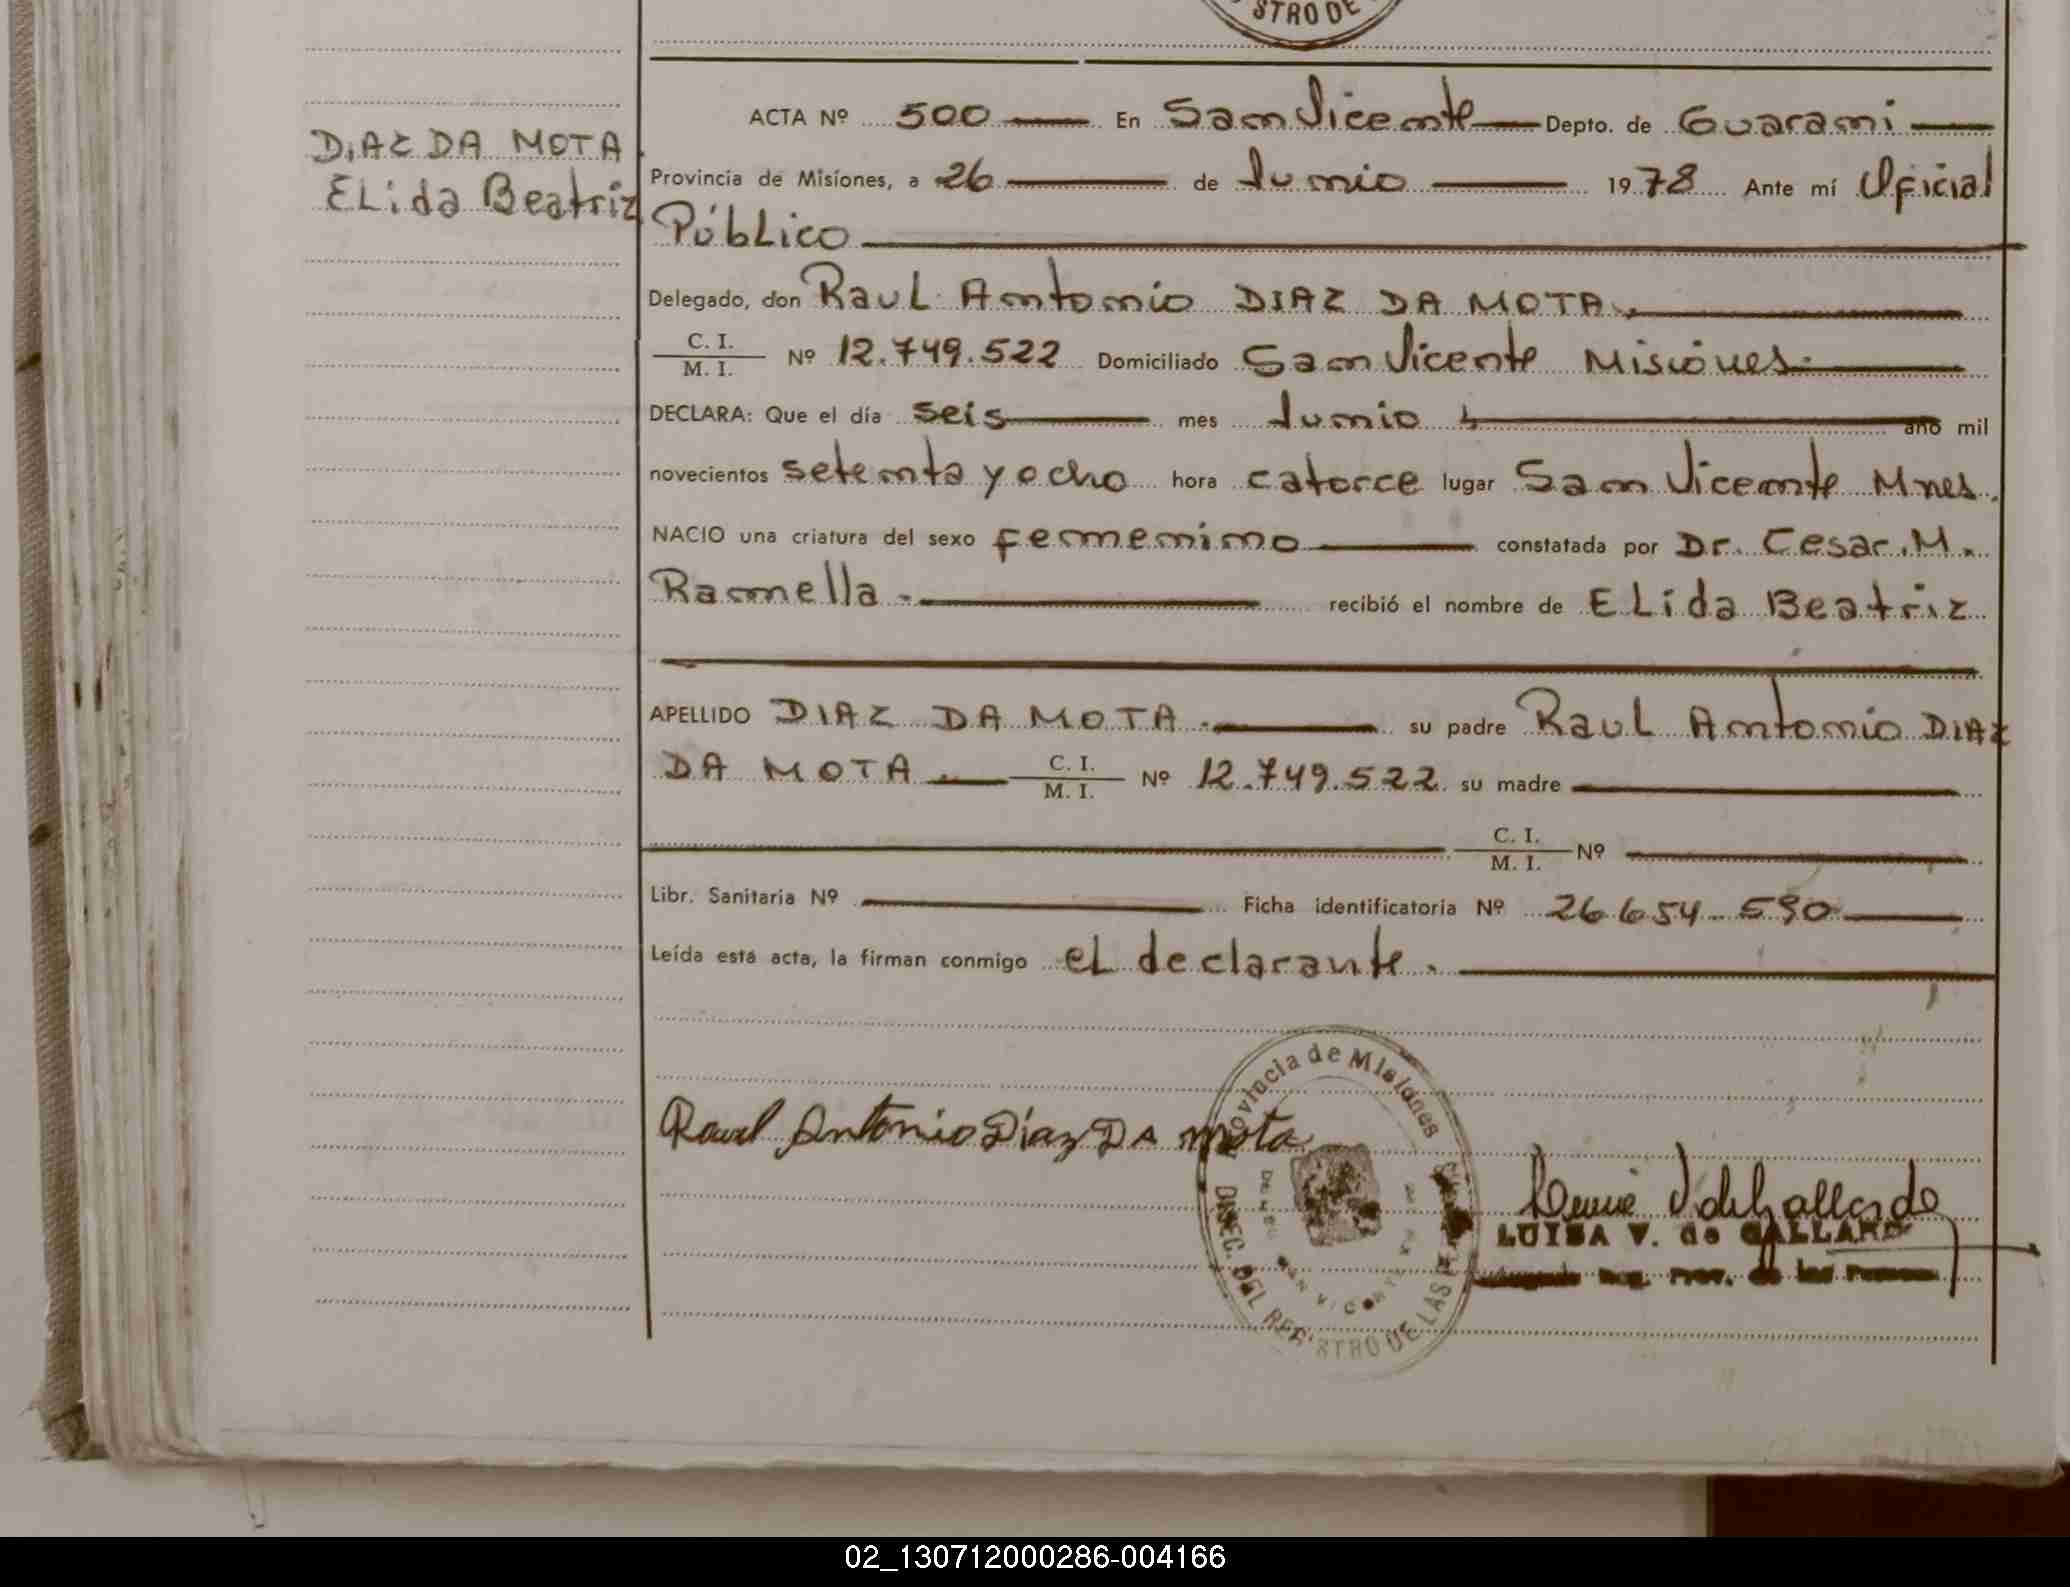 STRO DE
ACTA Nº 500 En San Vicente Depto. de Guarani
DIAZ DA MOTA
Elida Beatriz
Provincia de Misiones, a 26 de Junio 1978 Ante mí Oficial
Público
Delegado, don Raul Antonio DIAZ DA MOTA.
C. I.
M. I. Nº 12.749.522 Domiciliado San Vicente Misiones.
DECLARA: Que el día seis mes Junio año mil
novecientos setenta y ocho hora catorce lugar San Vicente Mnes.
NACIO una criatura del sexo femenino constatada por Dr. Cesar. M.
Ramella.- recibió el nombre de Elida Beatriz
APELLIDO DIAZ DA MOTA.- su padre Raul Antonio DIAZ
DA MOTA.- C. I.
M. I. Nº 12.749.522 su madre
C. I.
M. I. Nº
Libr. Sanitaria Nº Ficha identificatoria Nº 26.654.590
Leída está acta, la firman conmigo el declarante.
Provincia de Misiones
Raul Antonio Diaz DA mota
LUISA V. de GALLARDO
DIREC. DEL REGISTRO DE LAS
SAN VICENTE
02_130712000286-004166